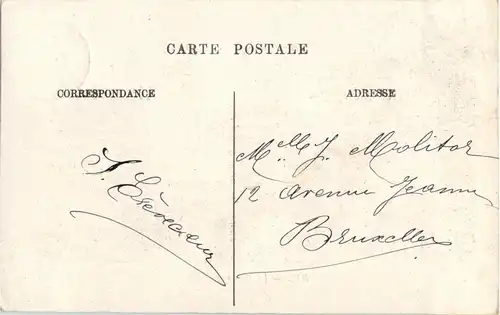 CARTE POSTALE
CORRESPONDANCE
ADRESSE
Melle J. Molitor
12 Avenue Jeanne
Bruxelles